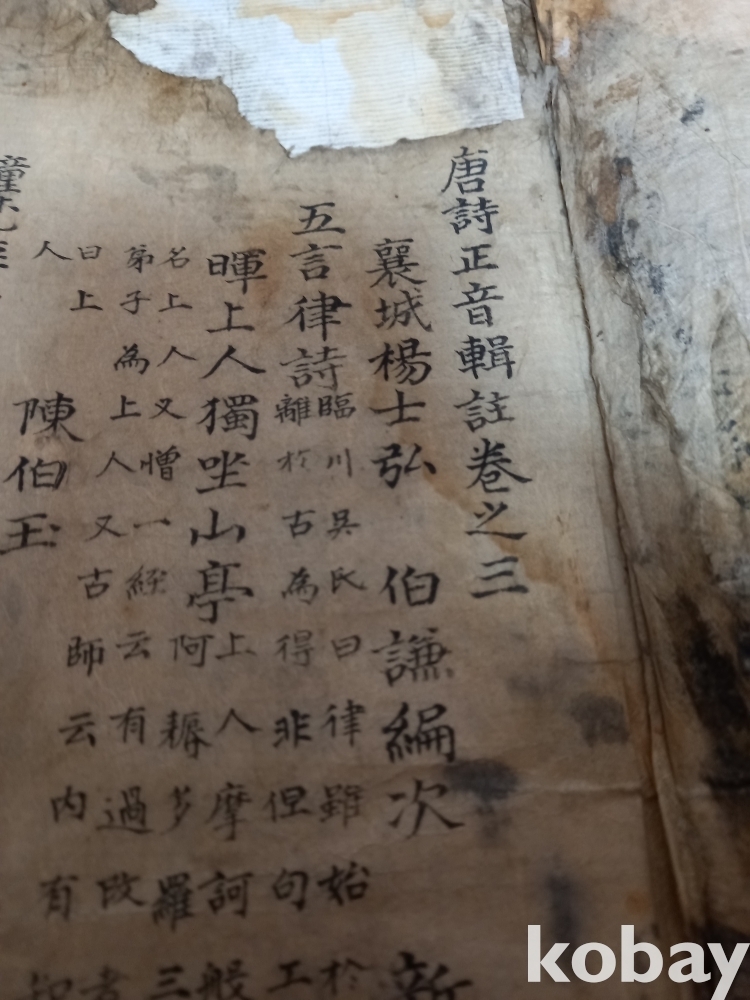 唐詩正音輯註卷之三
襄城楊士弘 伯謙編次 新
五言律詩
臨川吳氏曰律雖始於
離於古為得非但句工
暉上人獨坐山亭
上人摩訶般
阿耨多羅三
名上人又憎一經云有過改者
弟子為上人又古師云內有
曰上
人
陳伯玉